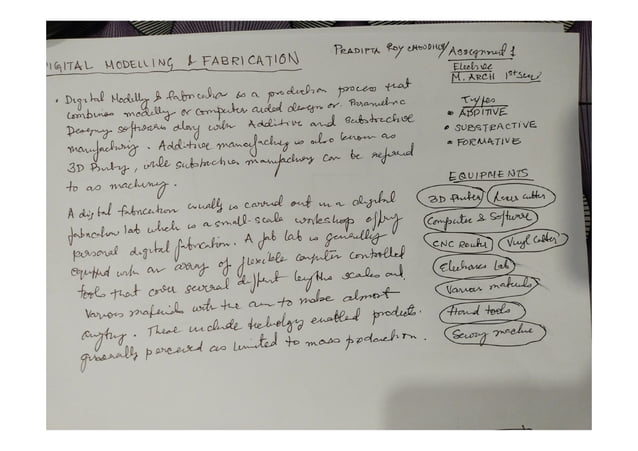 DIGITAL MODELLING & FABRICATION
PRADIPTA ROY CHOUDHURY
Assignment 1
Elective
M. ARCH 1st Sem
• Digital Modelly & fabrication is a production process that
combines modelly or computer aided design or Parametric
Designing softwares along with Additive and Substractive
manufacturing. Additive manufacturing is also known as
3D Printing, while substractive manufacturing can be referred
to as machining.
A digital fabrication usually is carried out in a digital
fabrication lab which is a small-scale workshop offering
personal digital fabrication. A fab lab is generally
equipped with an array of flexible computer controlled
tools that cover several different lengths scales and
various materials with the aim to make almost
anything. These include technology enabled products
generally perceived as limited to mass production.
Types
• ADDITIVE
• SUBSTRACTIVE
• FORMATIVE
EQUIPMENTS
3D Printer Laser cutter
Computer & Software
CNC Router Vinyl Cutter
Electronics Lab
Various materials
Hand tools
Sewing machine